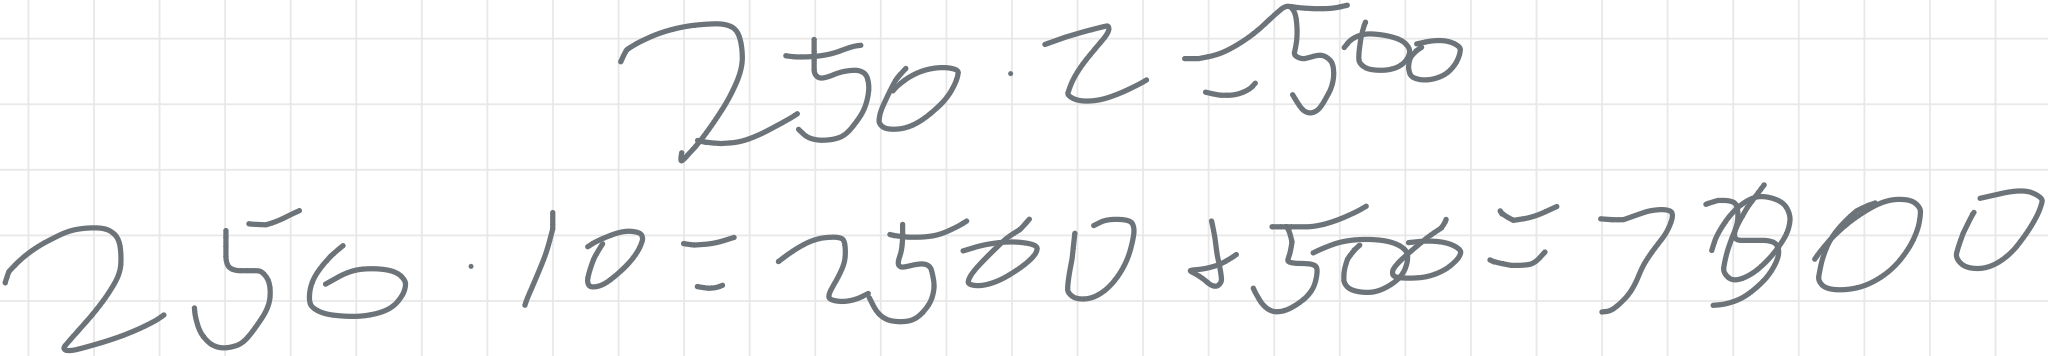 250 · 2 = 500
250 · 10 = 2500 + 500 =